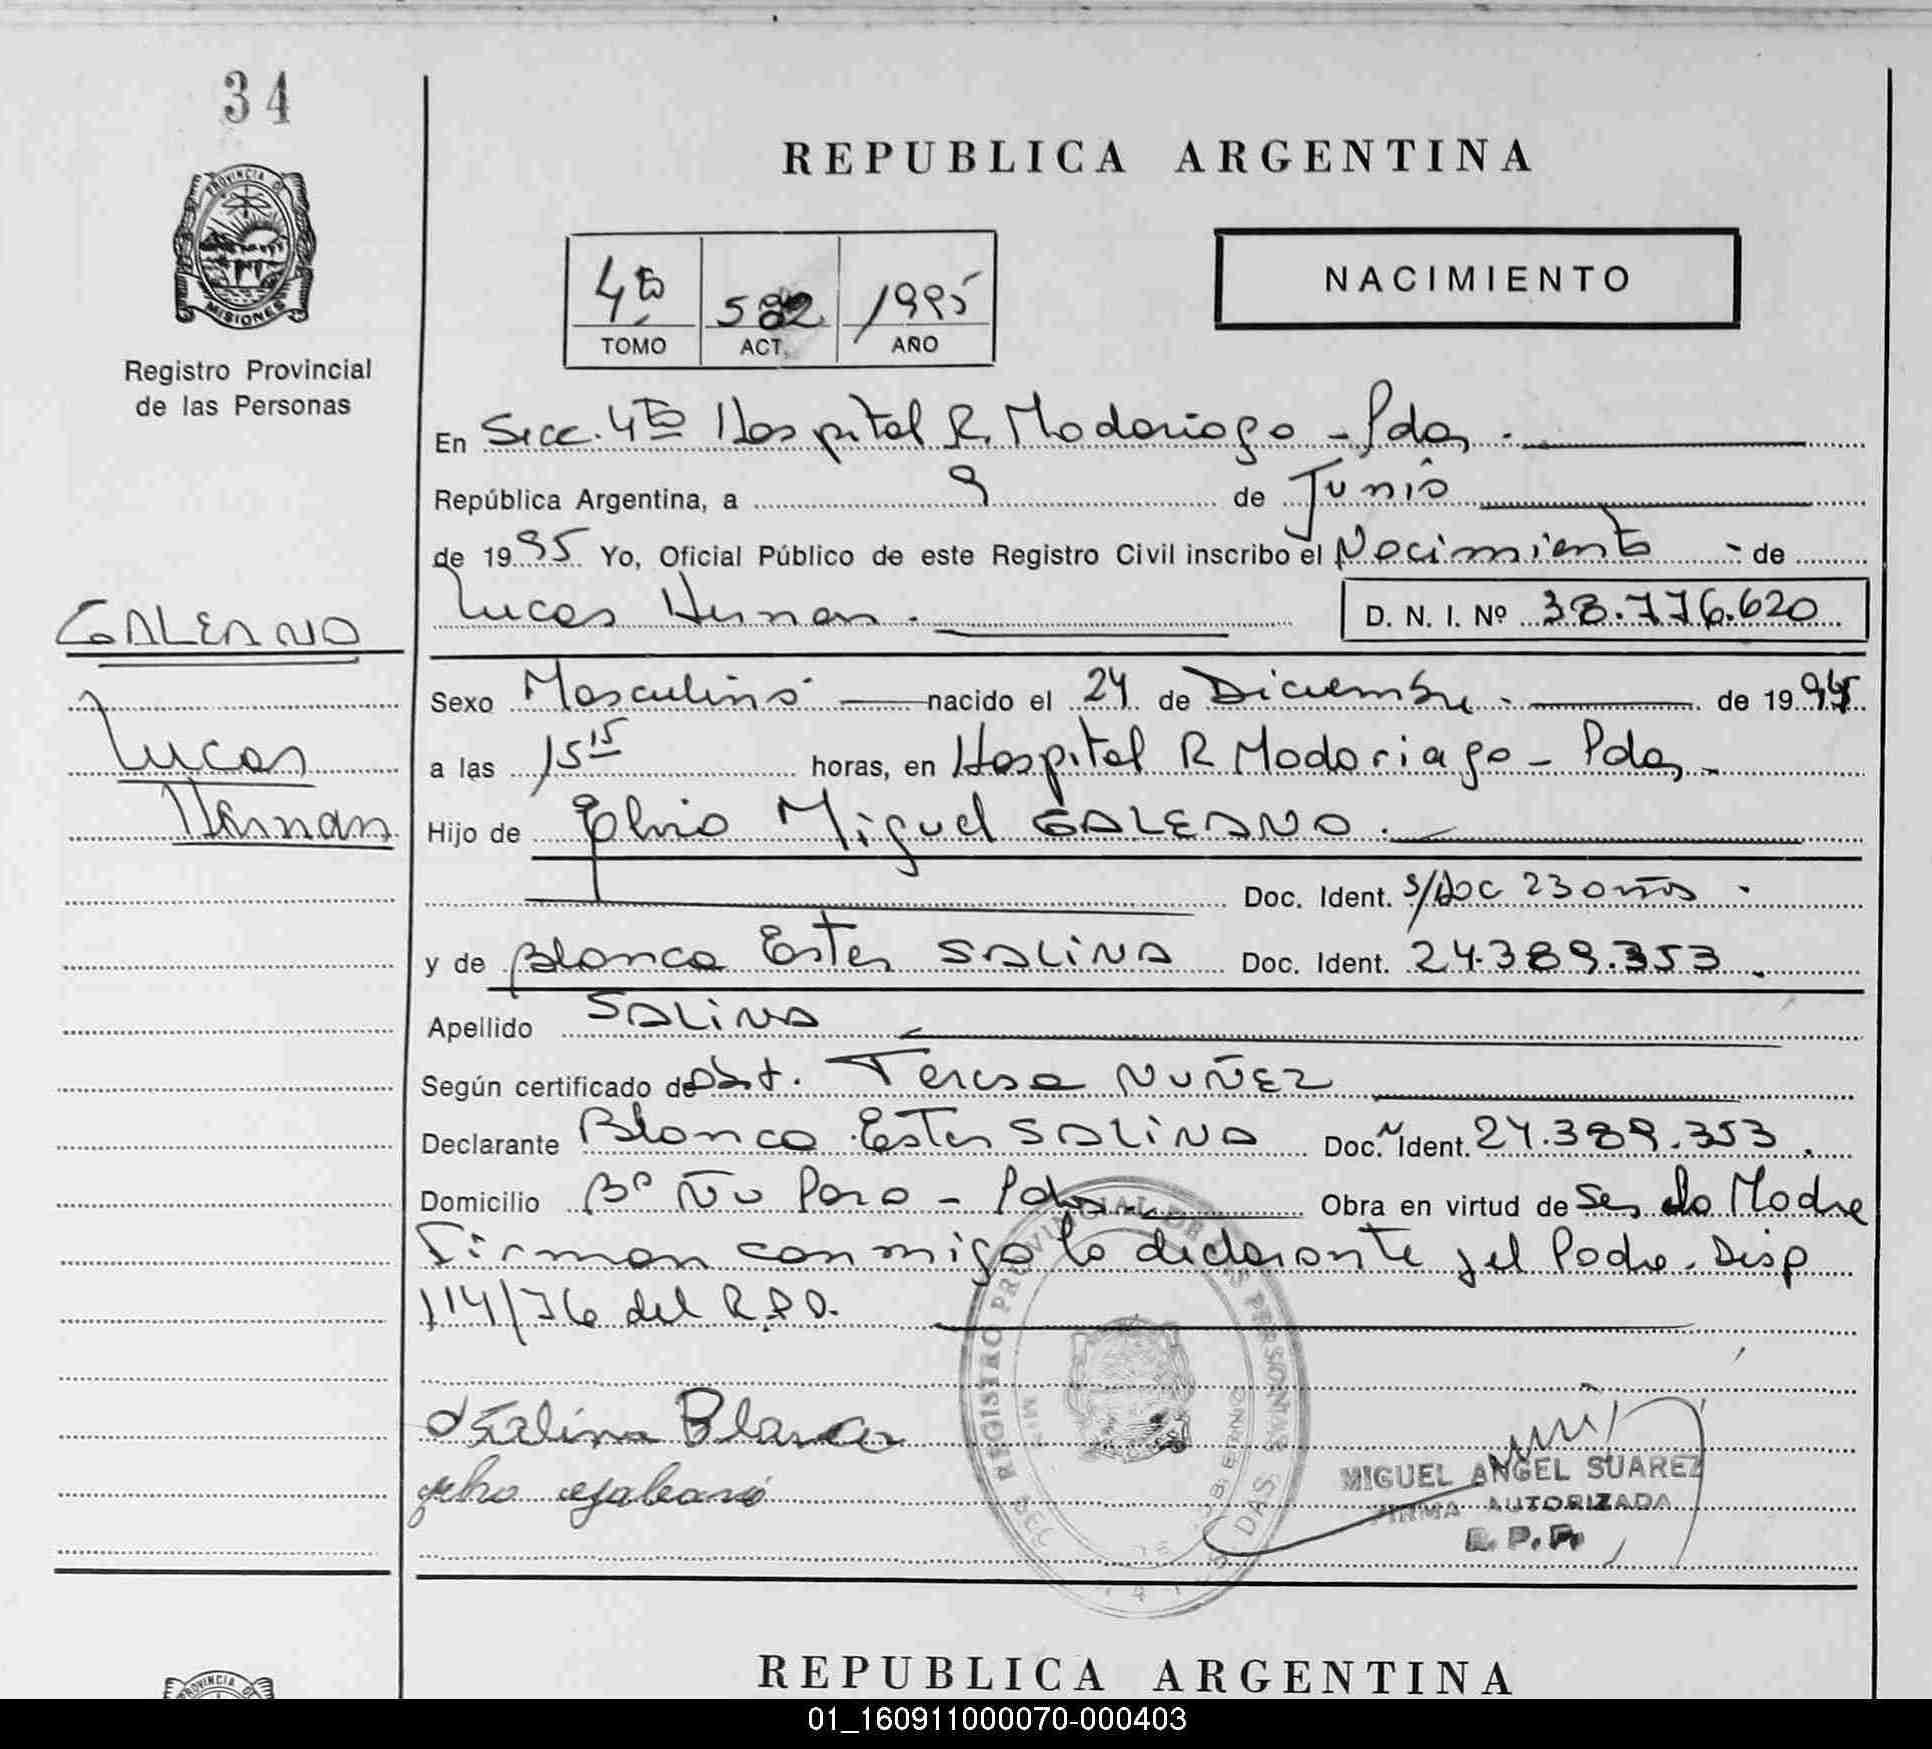 34
REPUBLICA ARGENTINA
PROVINCIA DE
MISIONES
Registro Provincial
de las Personas
4to 582 1995
TOMO ACT. AÑO
NACIMIENTO
En Secc. 4to Hospital R. Madariaga - Pdas.
República Argentina, a 9 de Junio
de 1995 Yo, Oficial Público de este Registro Civil inscribo el Nacimiento - de
Lucas Hernan. D. N. I. Nº 38.776.620
GALEANO
Lucas
Hernan
Sexo Masculino nacido el 24 de Diciembre de 19
a las 15 15 horas, en Hospital R Madariaga - Pdas -
Hijo de Elvio Miguel GALEANO.
Doc. Ident. s/doc 23 años
y de Blanca Ester SALINA Doc. Ident. 24.389.353.
Apellido SALINA
Según certificado de Obst. Teresa NUÑEZ
Declarante Blanca Ester SALINA Doc. Ident. 24.389.353.
Domicilio Bº Ñu Pora - Pdas Obra en virtud de Ser la Madre
Firman conmigo la declarante y el Padre. Disp
114/76 del R.P.P.
REGISTRO PROVINCIAL DE LAS PERSONAS
Salina Blanca
MIGUEL ANGEL SUAREZ
FIRMA AUTORIZADA
R. P. P.
REPUBLICA ARGENTINA
01_160911000070-000403